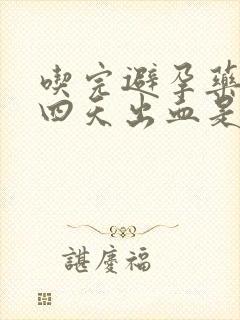 喫完避孕藥
四天出血是
諶慶福